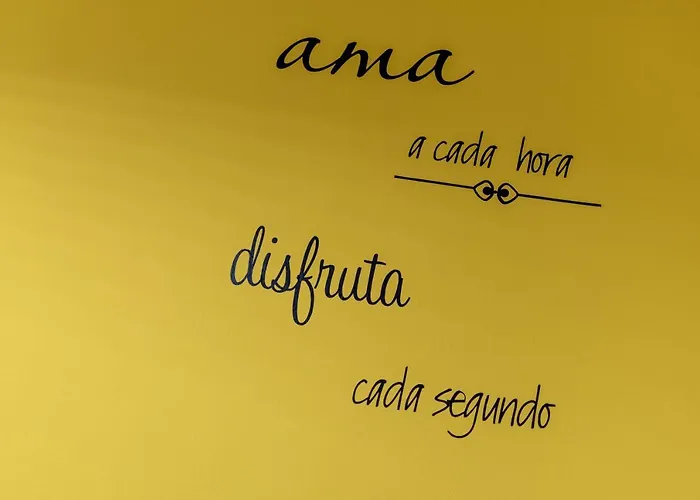 ama
a cada hora
disfruta
cada segundo